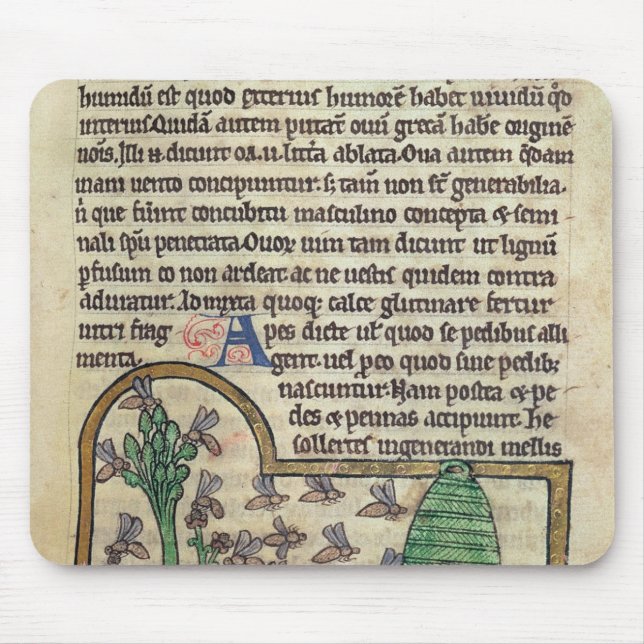 humidū est quod exterius humorē habet uiuidū qđ
interius. Quidā autem putāt ouū grecā habē origine͞
nois. Illi n̄ dicunt oa. u. littā ablata. Oua autem qđam
inani uento concipiuntur. s; tam̄ non s̄t generabilia.
n̄ que fuīnt concubitu masculino concepta & semi
nali spū penetrata. Quoꝝ uim tam dicunt ut lignū
ꝑfusum eo non ardeat ac ne uestis quidem contra
aduratur. Admyxta quoq; calce glutinare fertur
uitri frag
menta.
Apes dicte ul̄ quod se pedibus alli
gent. uel ꝓeo quod sine pedib;
nascuntur. Nam postea & pe
des & pennas accipiunt. he
sollertes ingenerandi mellis